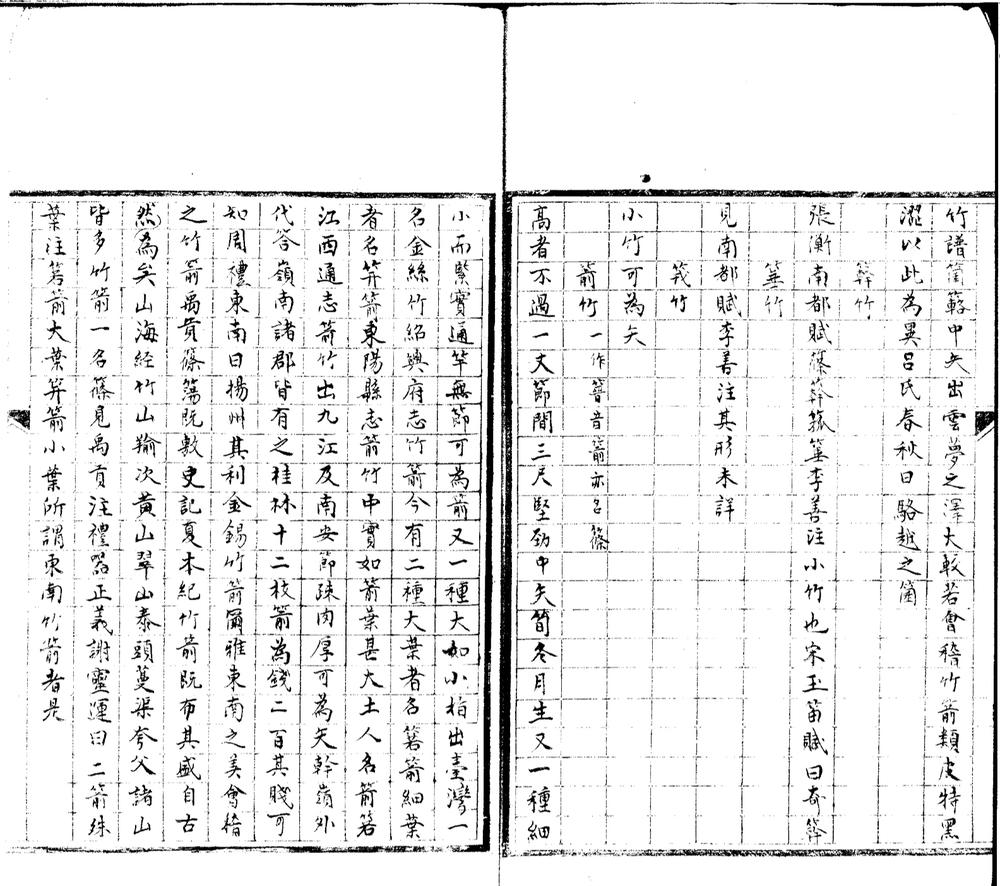 竹譜箘簵中矢出雲夢之澤大較若會稽竹箭類皮特黑
澀以此為異呂氏春秋曰駱越之箘
簳竹
張衡南都賦篠簳箛箠李善注小竹也宋玉笛賦曰奇簳
箠竹
見南都賦李善注其形未詳
䇶竹
小竹可為矢
箭竹一作䉍音箭亦名篠
高者不過一丈節間三尺堅劲中矢筍冬月生又一種細
小而緊實通竿無節可為箭又一種大如小指出臺灣一
名金絲竹紹興府志竹箭今有二種大葉者名箬箭細葉
者名筓箭東陽縣志箭竹中實如箭葉甚大土人名箭箬
江西通志箭竹出九江及南安節疎肉厚可為矢幹嶺外
代答嶺南諸郡皆有之桂林十二枝箭為錢二百其賤可
知周禮東南曰揚州其利金錫竹箭爾雅東南之美會稽
之竹箭禹貢篠簜既敷史記夏本紀竹箭既布其盛自古
然為矣山海经竹山羭次黃山翠山泰頭蔓渠夸父諸山
皆多竹箭一名篠見禹貢注禮器正義謝靈運曰二箭殊
葉注箬箭大葉筓箭小葉所謂東南竹箭者是